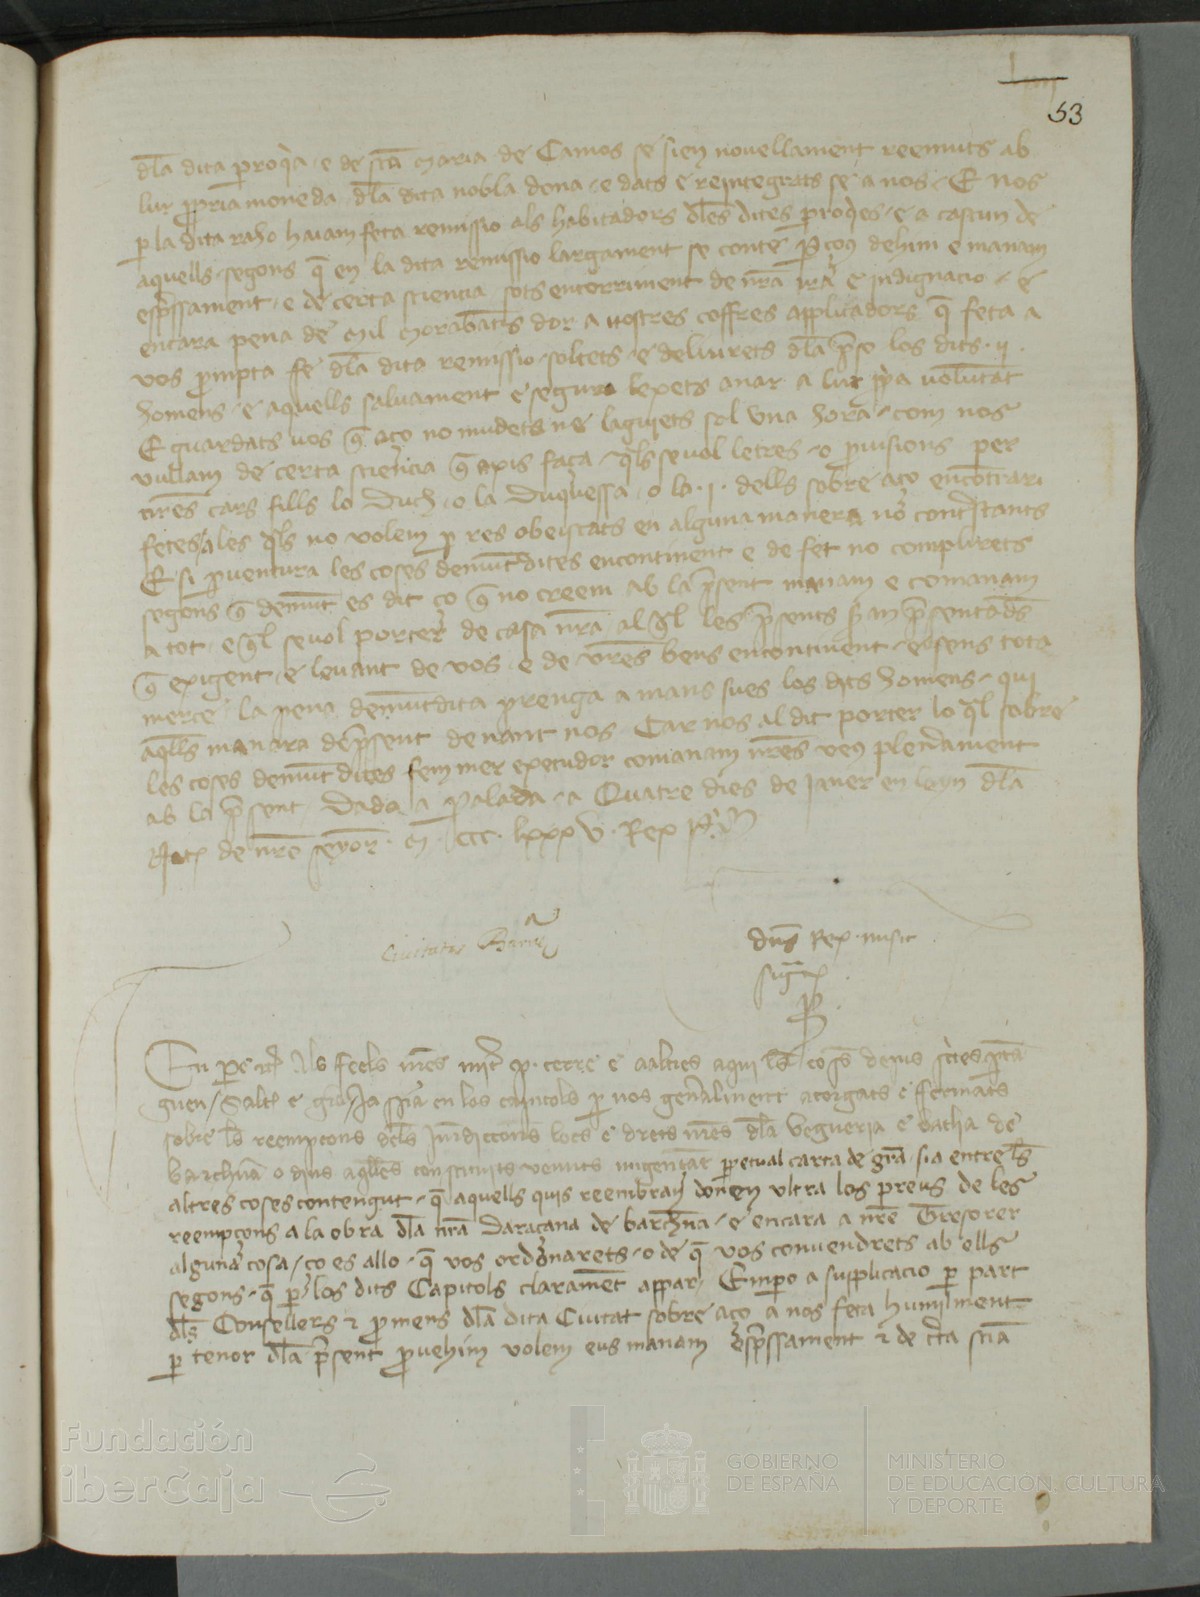 53
dla dita proqia e de sca Maria de Camos se sien novellament reemuts ab
lur ppria moneda dla dita nobla dona e dats e reintegrats se a nos E nos
p la dita raho haiam feta remissio als habitadors dles dites proqies e a cascun de
aquells segons q en la dita remissio largament se conte Pcoy dehim e manam
espssament e de certa sciencia sots encorriment de nra ira e indignacio e
encara pena de Mil Morabatis dor a nostres coffres applicadors q feta a
vos prompta fe dla dita remissio soltets e deliurets dla pso los dits ij
homens e aquells salvament e segura lexets anar a lur ppa voluntat
E guardats vos q aço no mudets ne laguiets sol una hora com nos
vullam de certa sciencia q axis faça qls sevol letres o pvisions per
nres cars fills lo Duch o la Duquessa o la I dells sobre aço en contrari
fetes les qls no volem p res obeiscats en alguna manera no contstants
E si pventura les coses demut dites encontinent e de fet no complirets
segons q demut es dit ço q no creem ab la psent manam e comanam
a tot e ql sevol porter de casa nra al ql les psents sran psentades
q exigent e levant de vos e de vres bens encontinent e sens tota
merce la pena demut dita prenga a mans sues los dits homens qui
aqlls manara de psent denant nos Car nos al dit porter lo ql sobre
les coses demut dites fem mer executor comanam nres veus plenament
ab la psent Dada a Palada a Quatre dies de Janer en lany dla
Nat de nre senyor M CCC lxxxv Rex P
Civitatis Barcn
Dns Rex misit
sigt
P
En Pere al feels nres mic p cerre e aaltres aqui ls coses deius scites
guen Salt e gra Ja sia en los capitols p nos genalment atorgats e fermats
sobre ls reempcons dels Juridiccions lochs e drets nres dla Vegueria e batlia de
barchna o dins aqlles constituits venuts migençant ppetual carta de gra sia entre ls
altres coses contengut q aquells quis reembran donen ultra los preus de les
reempcons a la obra dla nra Daraçana de barchna e encara a nre Tresorer
alguna cosa ço es allo q vos ordonarets o de q vos convendrets ab ells
segons q p los dits Capitols clarament appar Empo a supplicacio p part
dls Consellers e pmens dla dita Ciutat sobre aço a nos feta humilment
p tenor dla psent pvehim volem eus manam espssament e de cta scia
Fundación
iberCaja
GOBIERNO
DE ESPAÑA
MINISTERIO
DE EDUCACIÓN, CULTURA
Y DEPORTE